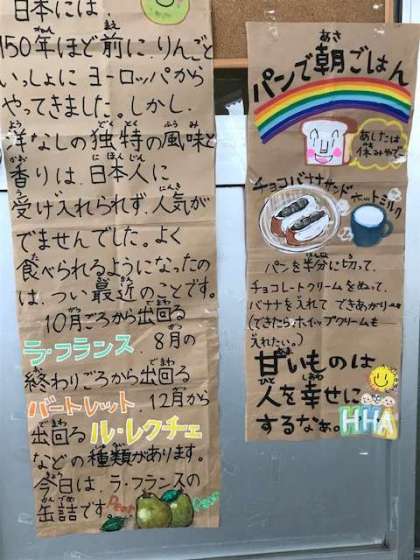 日本には
150年ほど前に、りんごと
いっしょに ヨーロッパから
やってきました。しかし、
洋なしの独特の風味と
香りは、日本人に
受け入れられず、人気が
でませんでした。よく
食べられるようになったの
は、つい最近のことです。
10月ごろから出回る
ラ・フランス 8月の
終わりごろから出回る
バートレット 12月から
出回る ル・レクチェ
などの種類があります。
今日は、ラ・フランスの
缶詰です。
パンで朝ごはん
あしたは
休みやで
チョコバナナサンド
ホットミルク
パンを半分に切って、
チョコレートクリームをぬって、
バナナを入れて できあがりー
(できたら、ホイップクリームも
入れたい。)
甘いものは
人を幸せに
するなぁ。
HHA